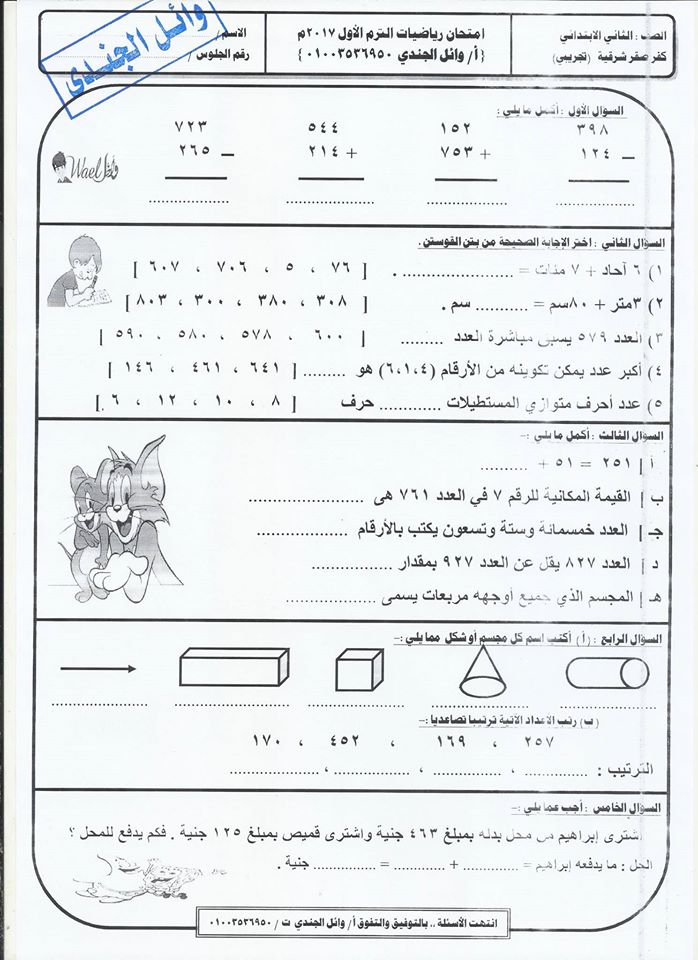 الصف : الثاني الابتدائي
كفر صقر شرقية ( تجريبي)
امتحان رياضيات الترم الأول ٢٠١٧م
{أ/ وائل الجندي ٠١٠٠٣٥٣٦٩٥٠ }
الاسم/
رقم الجلوس /
وائل الجندي
السؤال الأول : أكمل ما يلي :
٣٩٨ ١٥٢ ٥٤٤ ٧٢٣
١٢٤ – ٧٥٣ + ٢١٤ + ٢٦٥ –
.................. .................. .................. ..................
Wael وائل
السؤال الثاني : اختر الإجابة الصحيحة من بين القوسين .
١) ٦ آحاد + ٧ مئات = .................... . [ ٧٦ ، ٥ ، ٧٠٦ ، ٦٠٧ ]
٢) ٣متر + ٨٠سم = .......... سم . [ ٣٠٨ ، ٣٨٠ ، ٣٠٠ ، ٨٠٣ ]
٣) العدد ٥٧٩ يسبق مباشرة العدد .......... [ ٦٠٠ ، ٥٧٨ ، ٥٨٠ ، ٥٩٠ ]
٤) أكبر عدد يمكن تكوينه من الأرقام (٦،١،٤) هو ......... [ ٦٤١ ، ٤٦١ ، ١٤٦ ]
٥) عدد أحرف متوازي المستطيلات ............ حرف [ ٨ ، ١٠ ، ١٢ ، ٦ ]
السؤال الثالث : أكمل ما يلي :–
أ | ٢٥١ = ٥١ + ..........
ب | القيمة المكانية للرقم ٧ في العدد ٧٦١ هى ....................
جـ | العدد خمسمائة وستة وتسعون يكتب بالأرقام ..................
د | العدد ٨٢٧ يقل عن العدد ٩٢٧ بمقدار ................
هـ | المجسم الذي جميع أوجهه مربعات يسمى ....................
السؤال الرابع : (أ ) أكتب اسم كل مجسم أو شكل مما يلي :–
.................. .................. .................. .................. ..................
(ب) رتب الاعداد الاتية ترتيبا تصاعديا :–
٢٥٧ ، ١٦٩ ، ٤٥٢ ، ١٧٠
الترتيب : ............. , .............. , ................ , ..................
السؤال الخامس : أجب عما يلي :–
اشترى إبراهيم من محل بدله بمبلغ ٤٦٣ جنية واشترى قميص بمبلغ ١٢٥ جنية . فكم يدفع للمحل ؟
الحل : ما يدفعه إبراهيم = ............ + ............ = ............ جنية .
انتهت الأسئلة .. بالتوفيق والتفوق أ/ وائل الجندي ت / ٠١٠٠٣٥٣٦٩٥٠